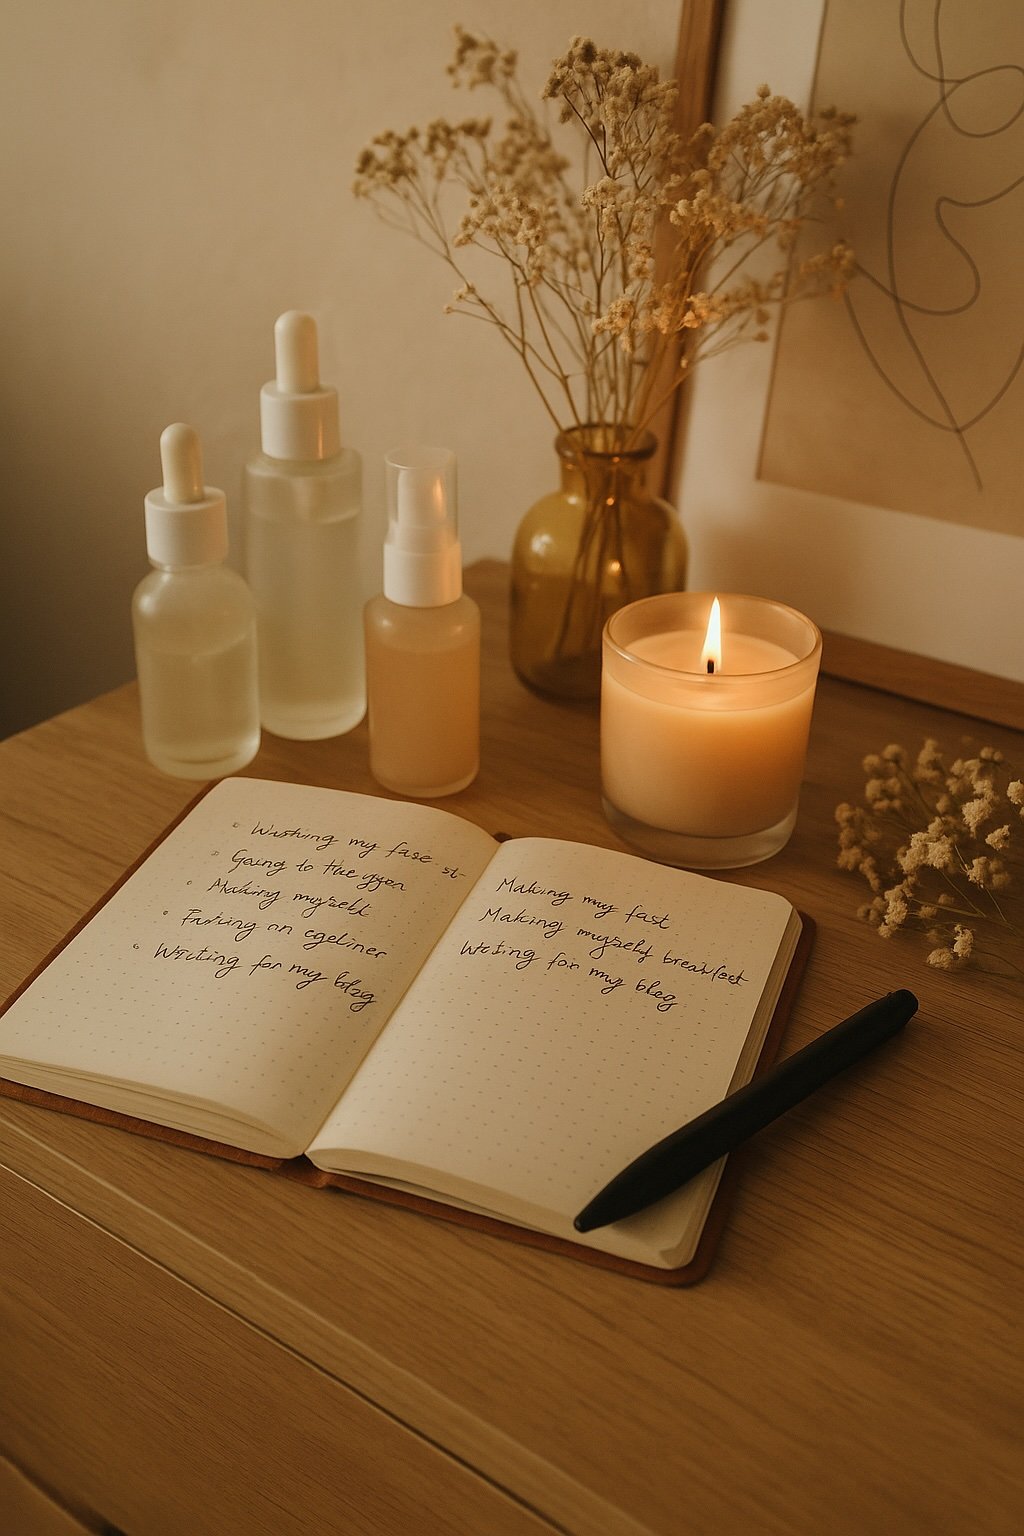 Washing my fase st-
Going to the gyen
Making myselt
on egeliner
Writing for my blog
Making my fast
Making myself breakfest
Writing for my bleg